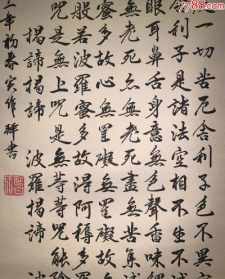 一切苦厄舍利子色不異
利子是諸法空相不生不
眼耳鼻舌身意無色聲香味
無老死亦無老死盡無苦集
多故心無罣礙無罣礙故
般若波羅蜜多故得阿耨多
無上咒是無等等咒能除
揭諦揭諦 波羅揭諦
年初春 作拜書
7788.com